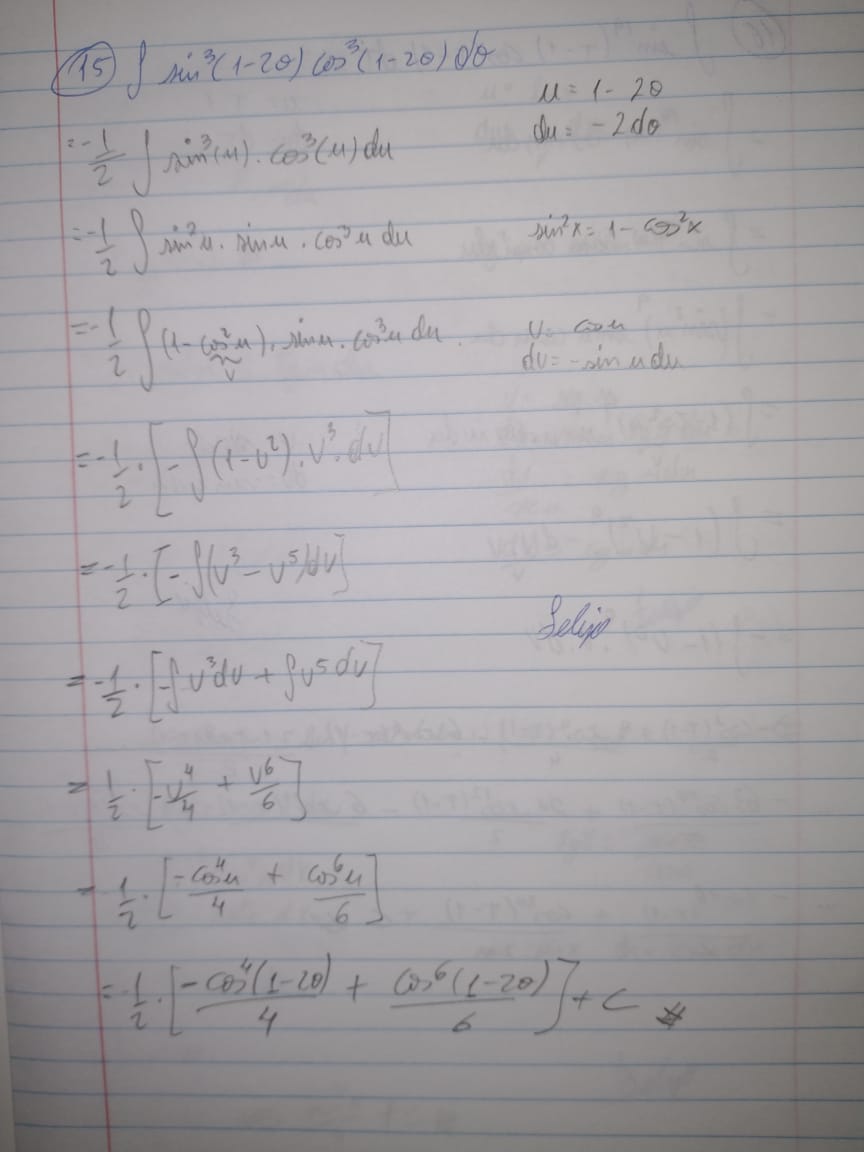 15 ∫ sin³(1-2θ) cos³(1-2θ) dθ
u = 1 - 2θ
du = -2dθ
= -1/2 ∫ sin³(u) . cos³(u) du
= -1/2 ∫ sin²u . sin u . cos³u du
sin²x = 1 - cos²x
= -1/2 ∫ (1 - cos²u) . sin u . cos³u du .
v
v = cos u
dv = -sin u du
= -1/2 . [-∫ (1 - v²) . v³ . dv]
= -1/2 . [-∫(v³ - v⁵)dv]
= -1/2 . [-∫ v³dv + ∫v⁵ dv]
= 1/2 . [-v⁴/4 + v⁶/6]
= 1/2 . [-cos⁴u/4 + cos⁶u/6]
= -1/2 . [-cos⁴(1-2θ)/4 + cos⁶(1-2θ)/6] + C #